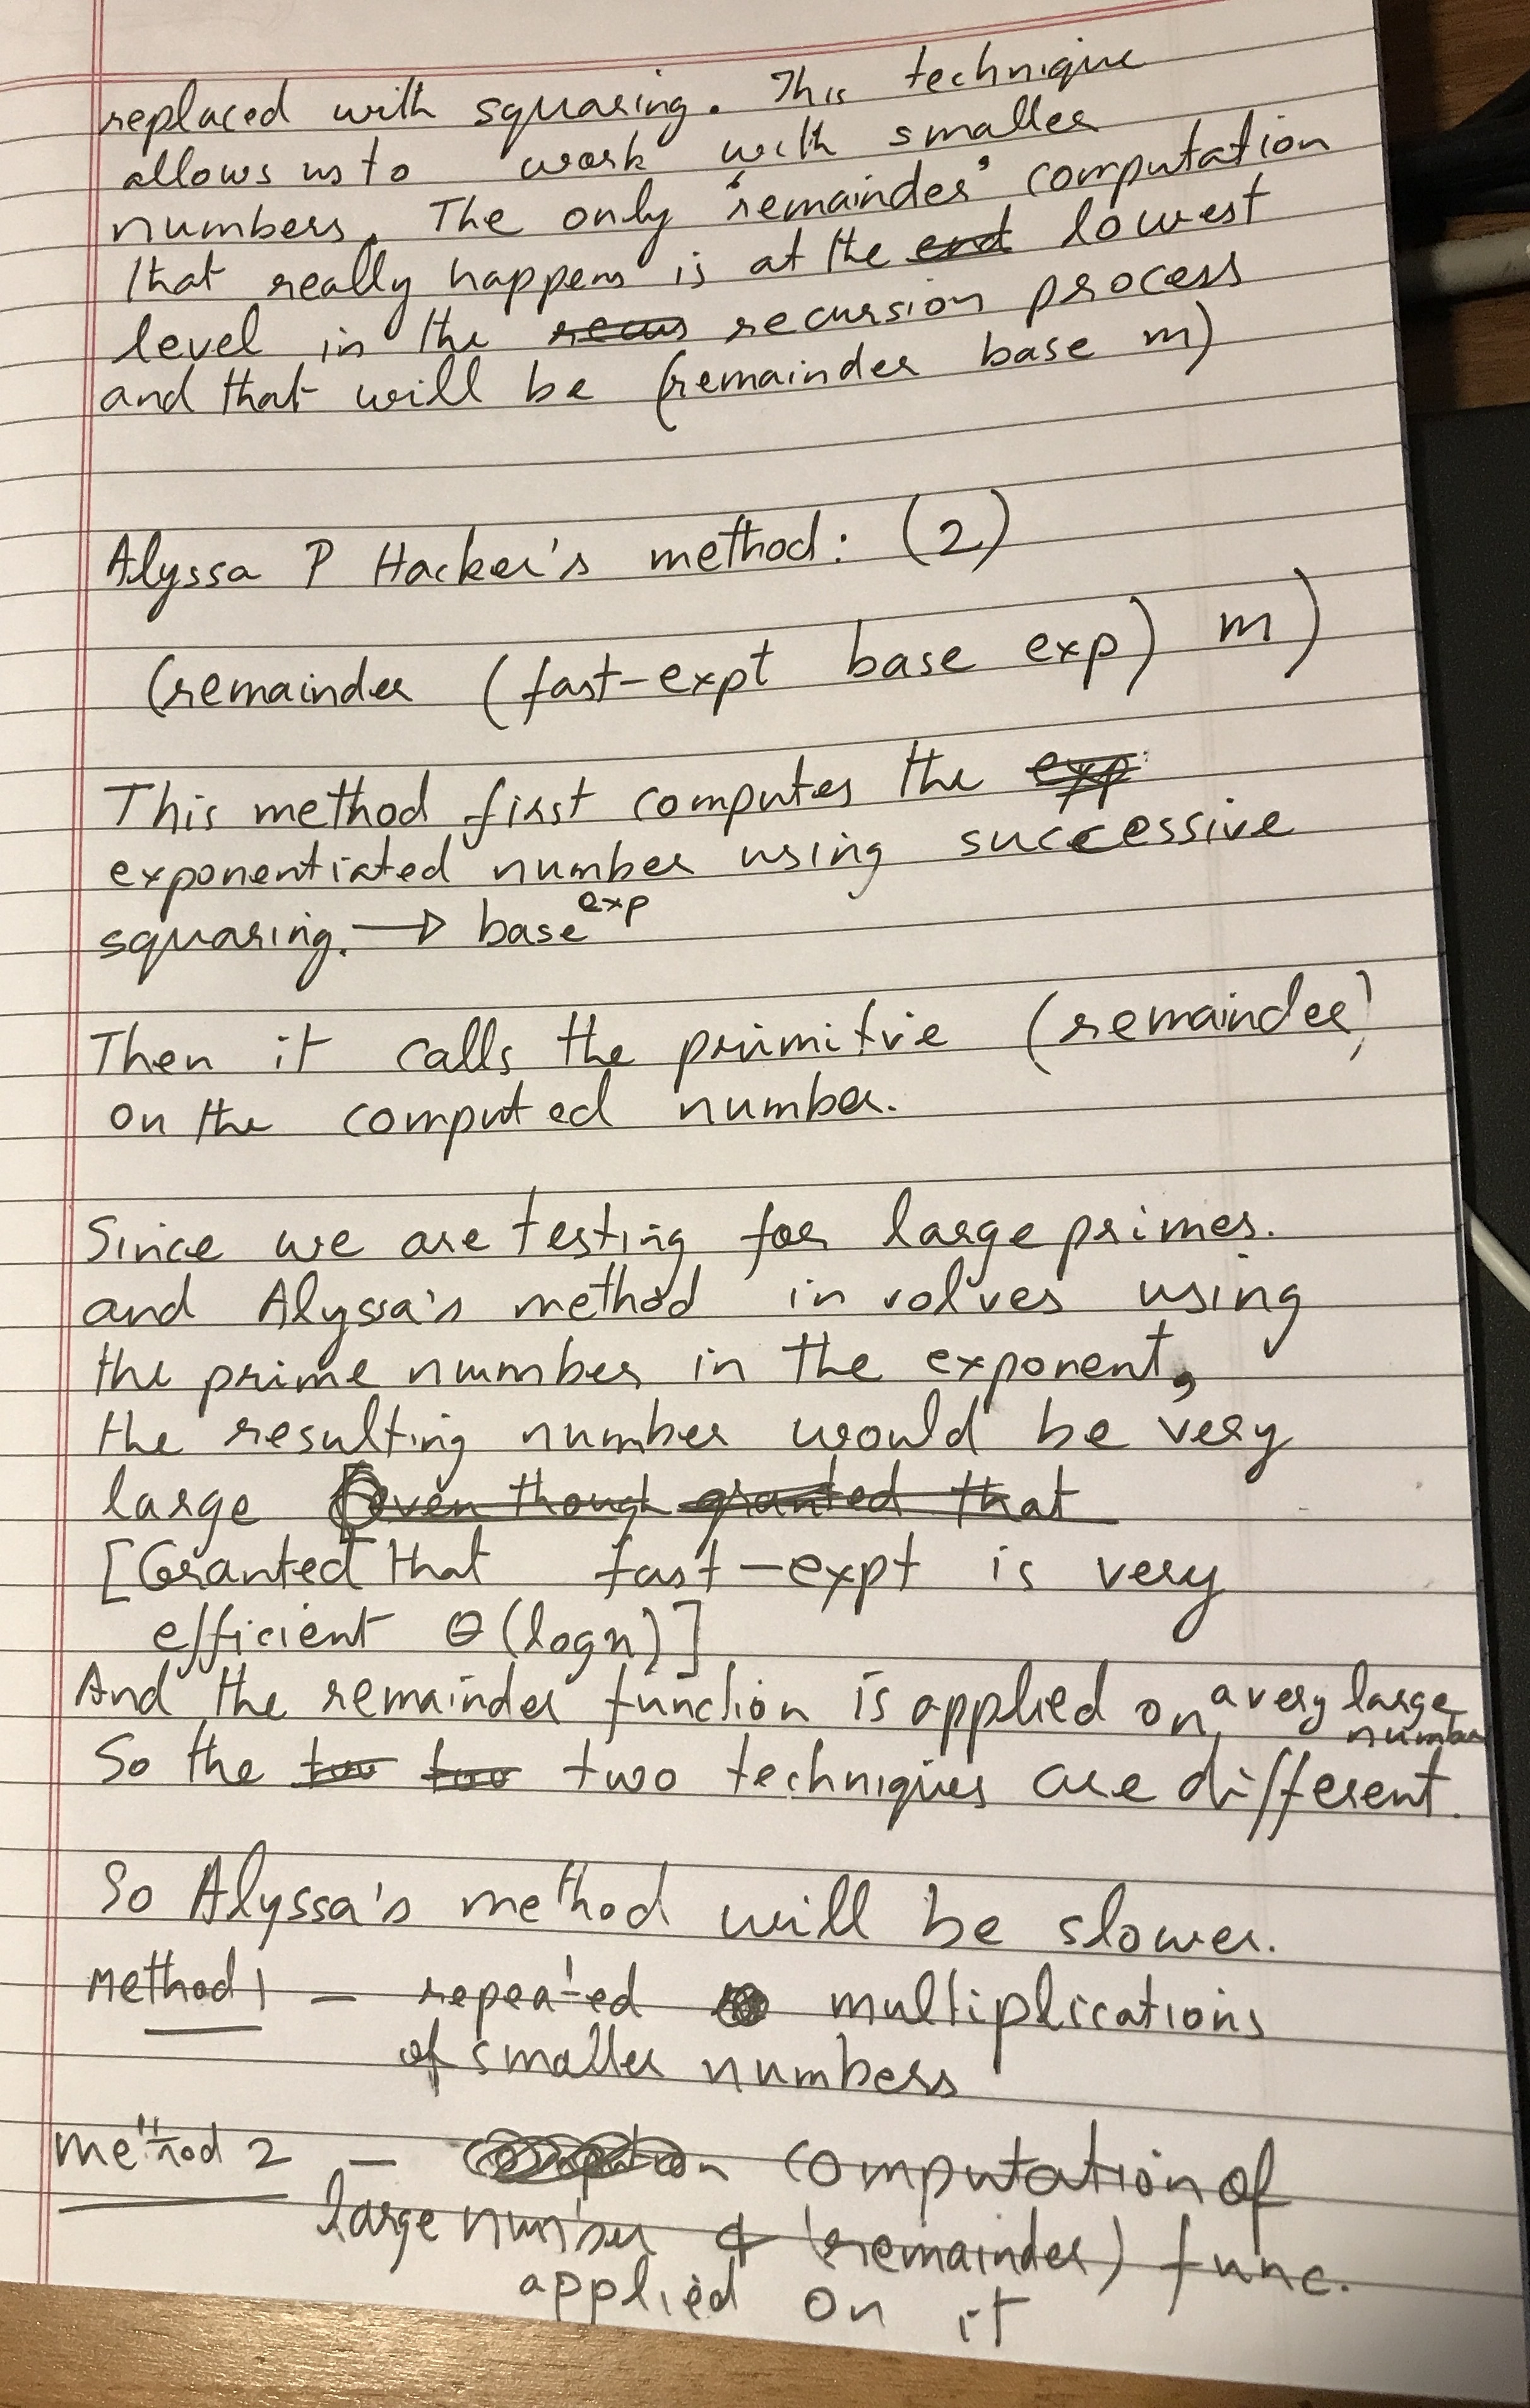 replaced with squaring. This technique
allows us to work with smaller
numbers. The only 'remainder' computation
that really happens is at the end lowest
level in the recus recursion process
and that will be (remainder base m)
Alyssa P Hacker's method: (2)
(remainder (fast-expt base exp) m)
This method first computes the exp
exponentiated number using successive
squaring. → base^exp
Then it calls the primitive (remainder)
on the computed number.
Since we are testing for large primes.
and Alyssa's method involves using
the prime number in the exponent,
the resulting number would be very
large Even though granted that
[Granted that fast-expt is very
efficient θ(logn)]
And the remainder function is applied on a very large number
So the two techniques are different.
So Alyssa's method will be slower.
Method 1 - repeated multiplications
of smaller numbers
method 2 - computation of
large number & (remainder) func.
applied on it